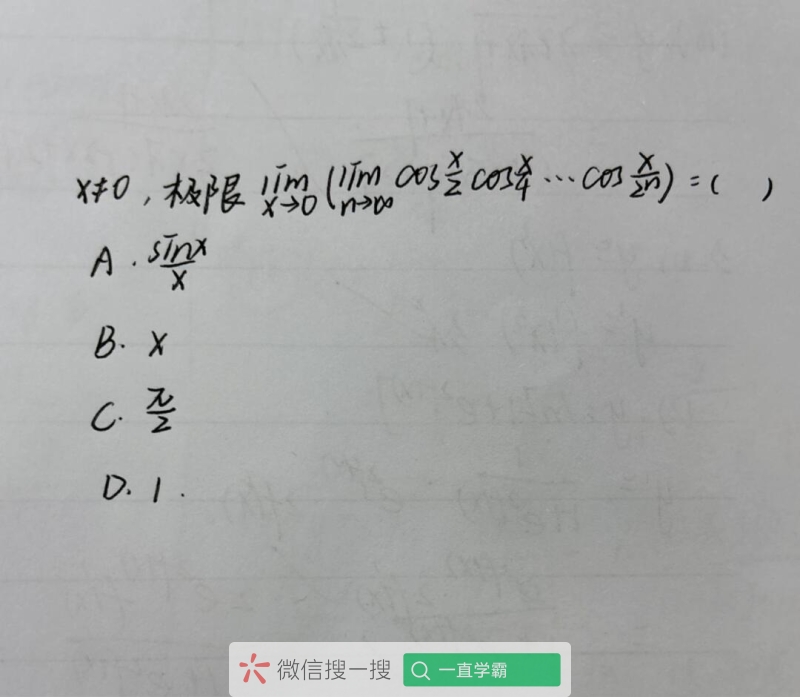 x≠0，极限 lim x→0 (lim n→∞ cos x/2 cos x/4 … cos x/2n) = ( )
A. sinx/x
B. x
C. π/2
D. 1.
微信搜一搜 一直学霸